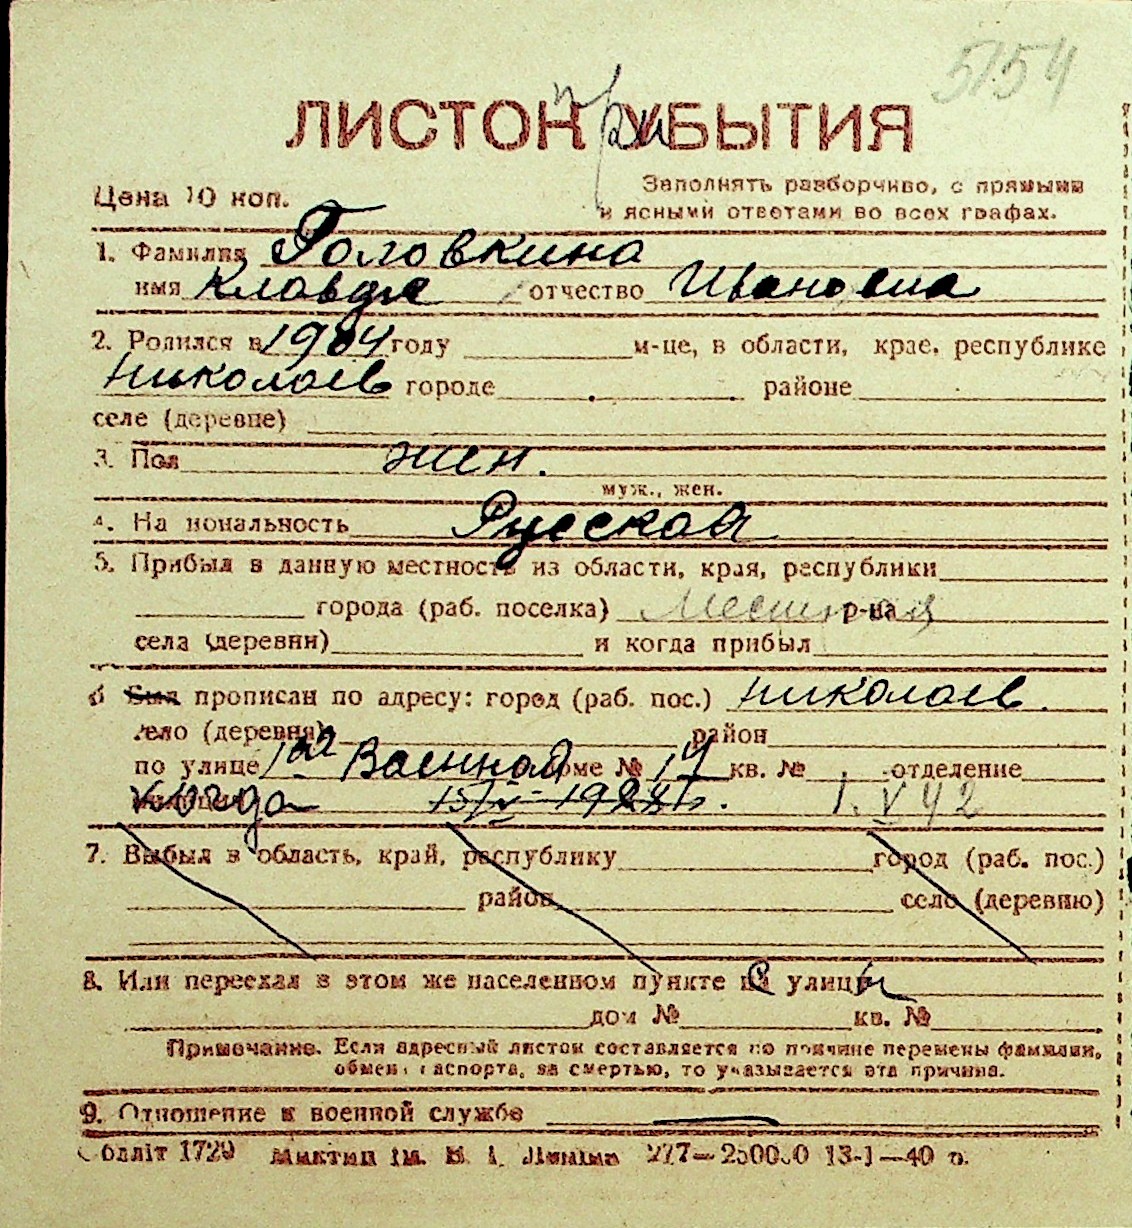 5154
ЛИСТОК при УБЫТИЯ
Цена 10 коп.
Заполнять разборчиво, с прямыми
и ясными ответами во всех графах.
1. Фамилия Головкина
имя Клавдия отчество Ивановна
2. Родился в 1904 году м-це, в области, крае, республике
Николаев городе районе
селе (деревне)
3. Пол жен.
муж., жен.
4. На иональность Русская
5. Прибыл в данную местность из области, края, республики
города (раб. поселка) Местная р-на
села (деревни) и когда прибыл
6 Был прописан по адресу: город (раб. пос.) Николаев
село (деревня) район
по улице 1ая Военная доме № 14 кв. № отделение
когда 1.V 42
7. Выбыл в область, край, республику город (раб. пос.)
район село (деревню)
8. Или переехал в этом же населенном пункте с улицы
дом № кв. №
Примечание. Если адресный листок составляется по причине перемены фамилии,
обмена паспорта, за смертью, то указывается эта причина.
9. Отношение к военной службе
Обліт 1729 277—250000 13-I—40 р.